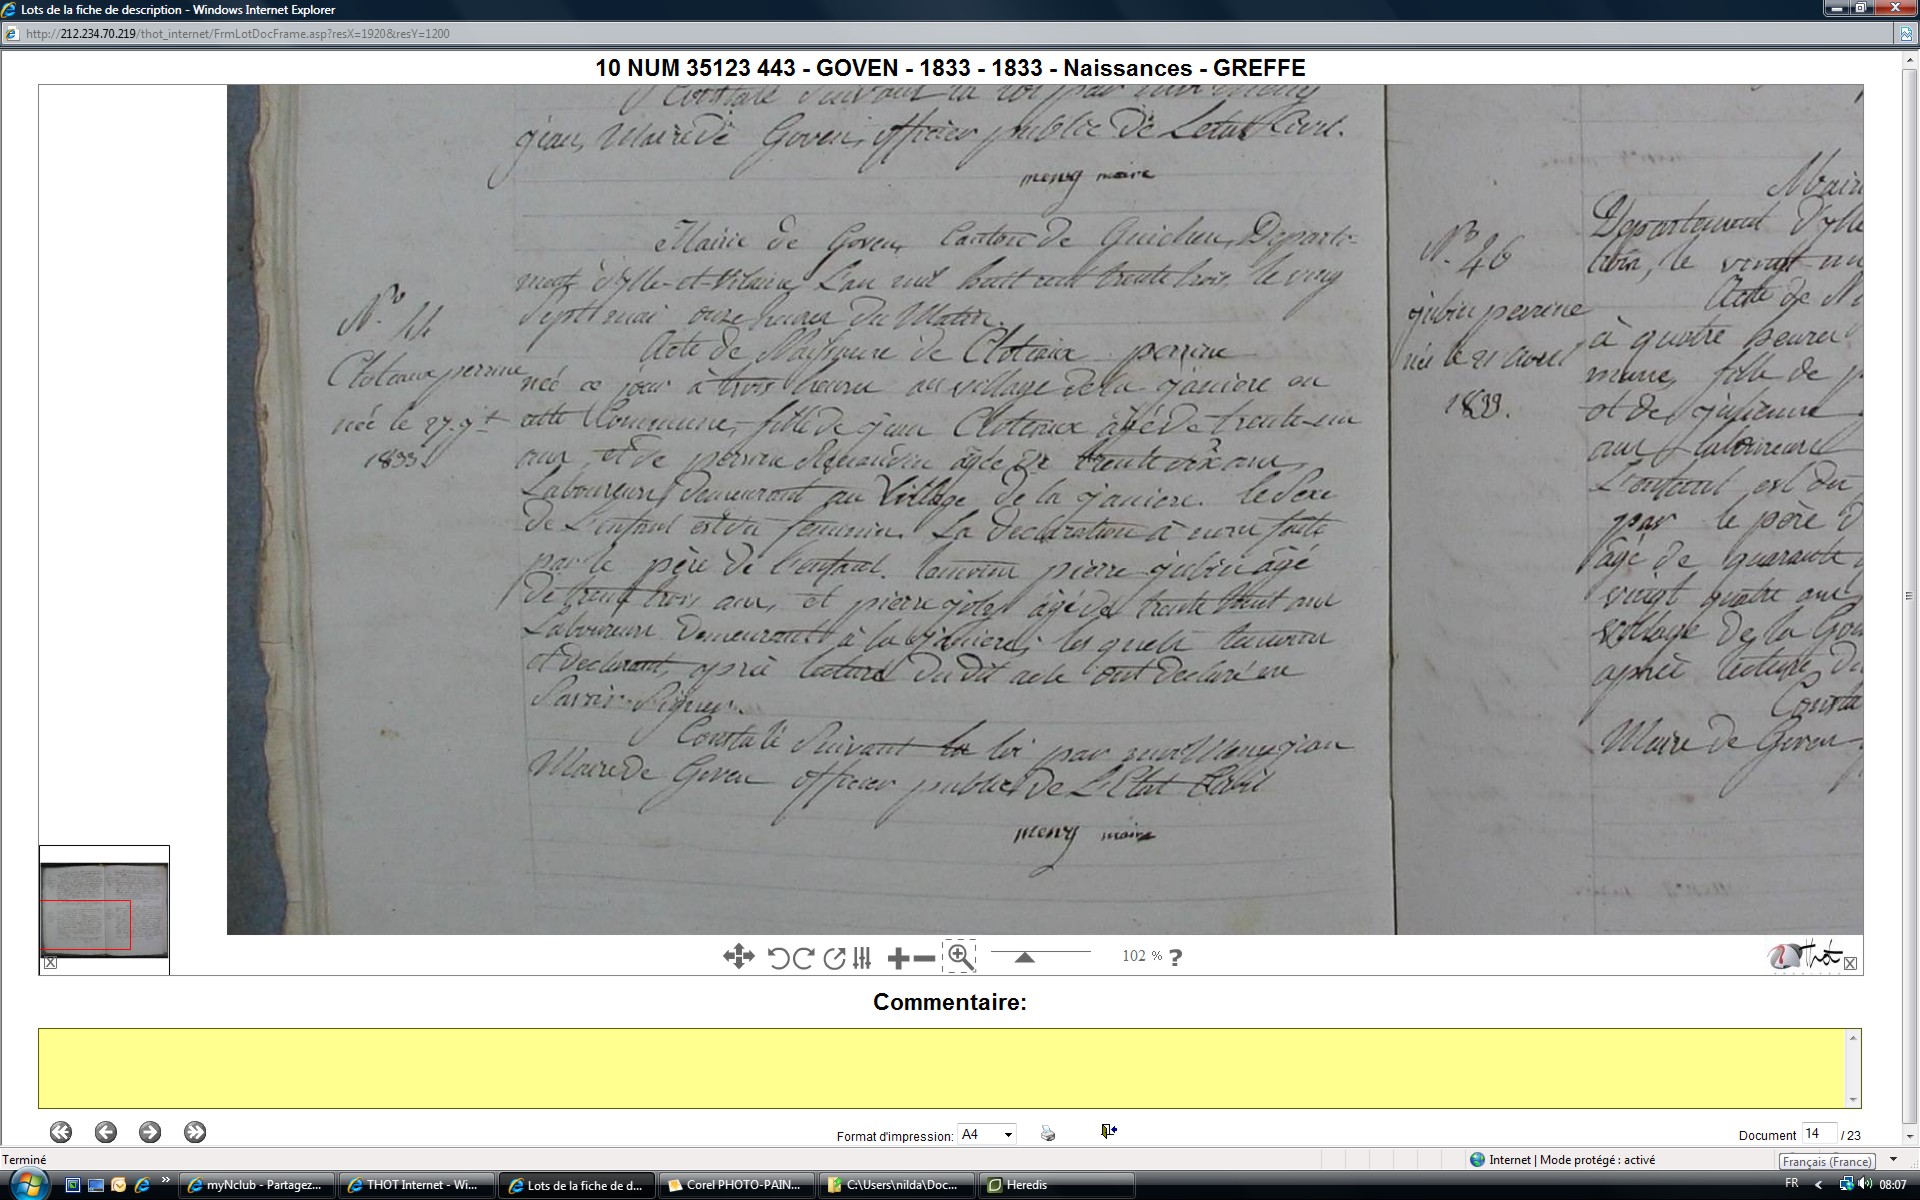 Lots de la fiche de description - Windows Internet Explorer
http://212.234.70.219/thot_internet/FrmLotDocFrame.asp?resX=1920&resY=1200
10 NUM 35123 443 - GOVEN - 1833 - 1833 - Naissances - GREFFE
Constaté Suivant la loi par
gian, Maire de Goven, officier public de Letat Civil.
meny maire
Mairie de Goven, Canton de Guichen, Departe-
ment d'ylle-et-Vilaine, L'an mil huit cent trente trois, le ving
Sept mai onze heures du Matin.
Acte de Naissance de Cloteaux perrine
née ce jour à trois heures au village de la janiere en
cette Commune, fille de jean Cloteaux âgé de trente-un
ans et de perrine âgée de trente dix ans,
Laboureurs, demeurant au Village de la janiere. le Sexe
de L'enfant est du feminin. La declaration à nous faite
par le père de l'enfant. temoins pierre jubin âgé
de trente trois ans, et pierre âgé de trente huit ans
Laboureurs demeurant à la janiere, les quels temoins
et declarant, après lecture du dit acte ont declaré ne
Savoir Signer.
Constaté Suivant la loi par nous Menugian
Maire de Goven officier public de L'Etat Civil
meny maire
N.° 44
Cloteaux perrine
née le 27.
1833.
N.° 46
jubin perrine
née le 21 avril
1833.
Mairi
Departement d'ylle
le vingt un
Acte de N
à quatre heures
mune, fille de p
et de julienne
ans laboureurs
L'enfant est du
par le père d
âgé de quarante
vingt quatre ans
village de la Gou
après lecture du
Consta
Maire de Goven
102 %
?
Thot
Commentaire:
Format d'impression: A4
Document 14 / 23
Terminé
Internet | Mode protégé : activé
Français (France)
»
myNclub - Partagez...
THOT Internet - Wi...
Lots de la fiche de d...
Corel PHOTO-PAIN...
C:\Users\nilda\Doc...
Heredis
FR
08:07